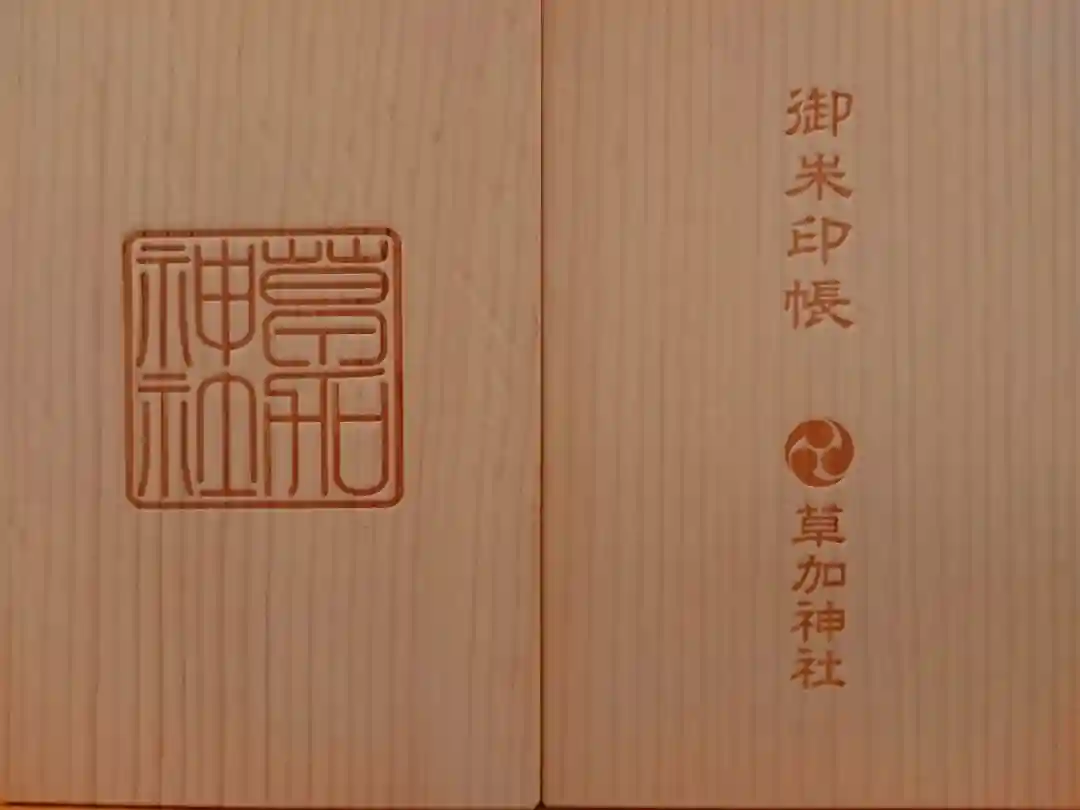 御朱印帳
草加神社
草加
神社